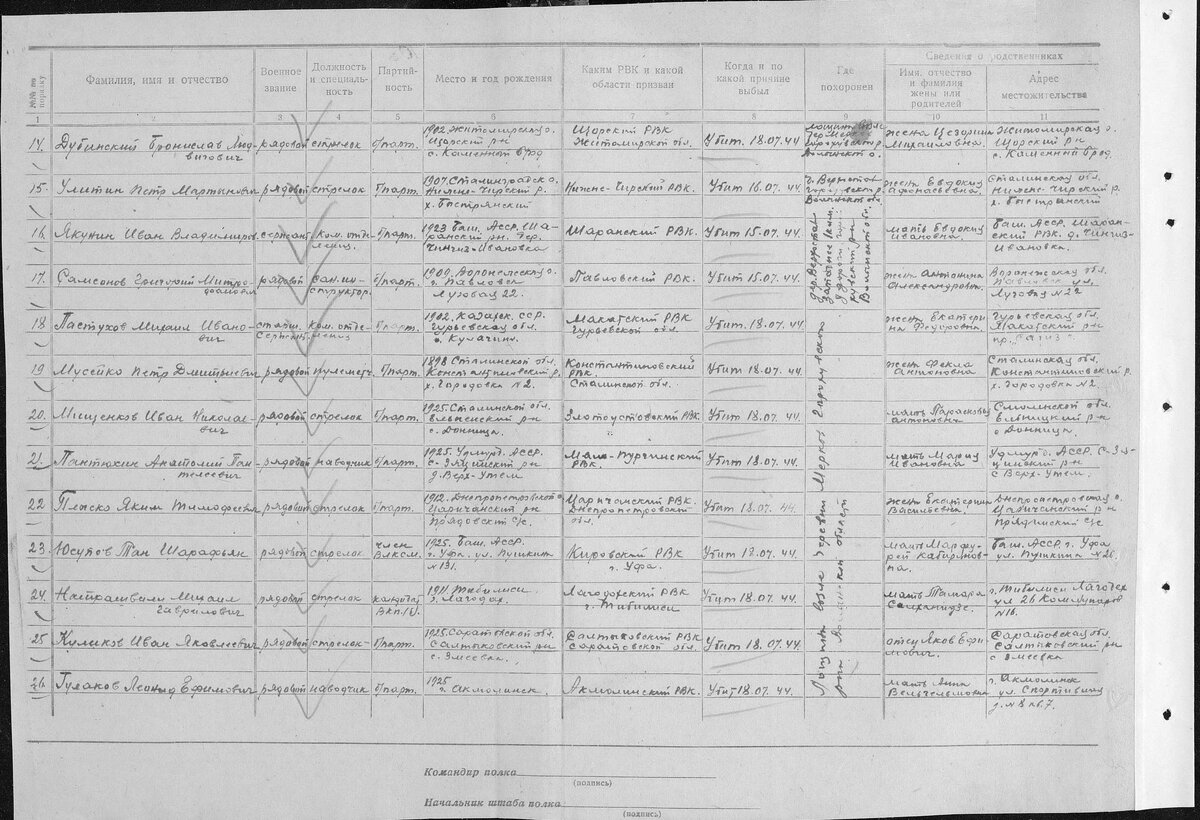 №№ по порядку
Фамилия, имя и отчество
Военное звание
Должность и специальность
Партийность
Место и год рождения
Каким РВК и какой области призван
Когда и по какой причине выбыл
Где похоронен
Сведения о родственниках
Имя, отчество и фамилия жены или родителей
Адрес местожительства
1 2 3 4 5 6 7 8 9 10 11
14. Дубинский Бронислав рядовой стрелок б/парт. 1902. Житомирская о. Щорский РВК Убит 18.07.44 жена Цезарина Житомирская о.
вигович Щорский р-н Житомирской обл. Михайловна. Щорский р-н
с. Каменный Брод с. Каменный Брод.
15. Улитин Петр Мартынович рядовой стрелок б/парт. 1907. Сталинградск. о. Нижне-Чирский РВК. Убит 16.07.44. жена Евдокия Сталинская обл.
Нижне-Чирский р. Афонасьевна. Нижне-Чирский р.
х. Быстрянский х. Быстрянский
16. Якунин Иван Владимиров. сержант ком. отде- б/парт. 1923 Баш. АССР. Ша- Шаранский РВК. Убит 15.07.44. мать Евдокия Баш. АССР. Шаран-
ления. ранский р-н. дер. Ивановна. ский РВК. д. Чингиз-
Чингиз-Ивановка Ивановка.
17. Самсонов Григорий Митро- рядовой сан. ин- б/парт. 1900. Воронежская о. Павловский РВК. Убит 15.07.44. жена Антонина Воронежская обл.
фанович структор. г. Павловск Александровна. Павловск ул.
Луговая 22. Луговая №22
18 Пастухов Михаил Ивано- старш. ком. отде- б/парт. 1902. Казахск. ССР. Макатский РВК Убит. 18.07.44. жена Екатери- Гурьевская обл.
вич сержант ления Гурьевская обл. Гурьевской обл. на Федоровна. Макатский р-н
19 Мусейко Петр Дмитриевич рядовой пулеметч. б/парт. 1898 Сталинской обл. Константиновский Убит 18.07.44. жена Фекла Сталинская обл.
Константиновский р. РВК. Антоновна Константиновский р.
х. Городовка №2. Сталинской обл. х. Городовка №2
20. Мищенков Иван Николае- рядовой стрелок б/парт. 1925. Сталинской обл. Златоустовский РВК. Убит 18.07.44. мать Парасковья Смоленской обл.
вич Ельнский р-н Антоновна Ельницкий р-н
с. Донница. с. Донница.
21. Пантюхин Анатолий Пан- рядовой наводчик б/парт. 1925. Удмурд. АССР. Мало-Пургинский Убит 18.07.44. мать Мария Удмурд. АССР.
телеевич РВК. Ивановна
д. Верх-Утем с. Верх-Утем.
22 Плыско Яким Тимофеевич рядовой стрелок б/парт. 1912. Днепропетровской о. Царичамский РВК. Убит 18.07.44. жена Екатерина Днепропетровская о.
Царичанский р-н Днепропетровский Васильевна. Царичанский р-н
с/с. обл. с/с
23. Юсупов Тан рядовой стрелок член 1925. Баш. АССР. Кировский РВК Убит 18.07.44. мать Баш. АССР г. Уфа
ВЛКСМ. г. Уфа. ул. Пушкина г. Уфа. ул. Пушкина
№131. на.
24. Михаил рядовой стрелок кандидат 1911. Тбилиси. РВК Убит 18.07.44. мать Тамара г. Тбилиси
Гаврилович ВКП(б). г. Тбилиси ул. 26 Коммунаров
№16.
25 Куликов Иван Яковлевич рядовой стрелок б/парт. 1925. Саратовской обл. Салтыковский РВК Убит 18.07.44. отец Яков Ефи- Саратовская обл.
Салтыковский р-н Саратовской обл. мович. Салтыковский р-н
с. Змеевка. с. Змеевка
26. Гулаков Леонид Ефимович рядовой наводчик б/парт. 1925 Акмолинский РВК. Убит 18.07.44. мать Анна г. Акмолинск
г. Акмолинск. ул. Спортивная
д. №8 кв. 7.
Командир полка
(подпись)
Начальник штаба полка
(подпись)